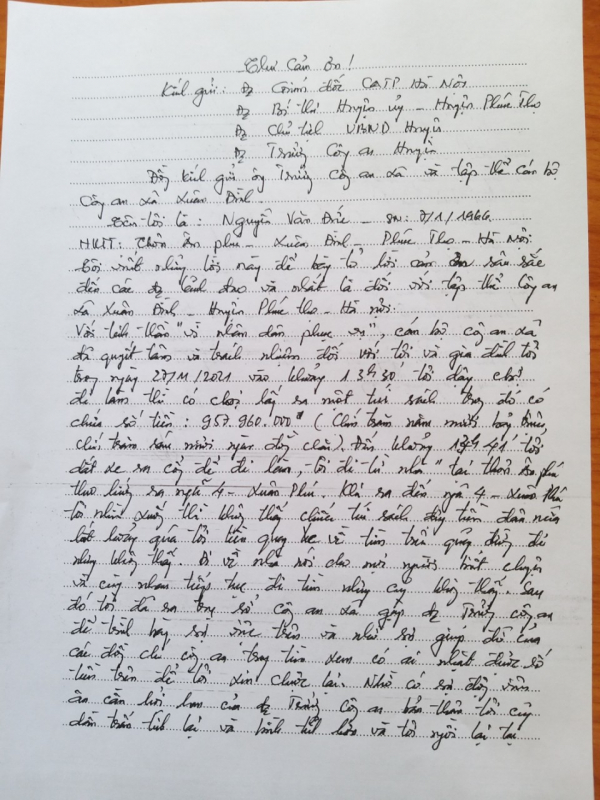 Thư Cảm ơn!
Kính gửi: Đ/c Giám đốc CATP Hà Nội
Đ/c Bí thư Huyện ủy – Huyện Phúc Thọ
Đ/c Chủ tịch UBND Huyện
Đ/c Trưởng Công an Huyện
Đồng kính gửi ông Trưởng Công an xã và tập thể cán bộ
Công an xã Xuân Đình.
Tên tôi là: Nguyễn Văn Đức – SN: 7/1/1966
HKTT: Thôn Ân phú – Xuân Đình – Phúc Thọ – Hà Nội.
Tôi viết những lời này để bày tỏ lời cảm ơn sâu sắc
đến các đ/c lãnh đạo và nhất là đối với tập thể Công an
xã Xuân Đình – Huyện Phúc thọ – Hà Nội.
Với tinh thần "vì nhân dân phục vụ", cán bộ công an xã
đã quyết tâm và trách nhiệm đối với tôi và gia đình tôi
trong ngày 27/11/2021 vào khoảng 13h30' tôi dậy
đi làm thì có lấy ra một túi sách trong đó có
chứa số tiền: 957.960.000đ (Chín trăm năm mươi bảy triệu,
chín trăm sáu mươi ngàn đồng chẵn). Đến khoảng 13h41' tôi
dắt xe ra cổng để đi làm, tôi đi từ nhà tại thôn Ân phú
theo hướng ra ngã 4 – Xuân Phú. Khi ra đến ngã 4 – Xuân Phú
tôi nhìn xuống thì không thấy chiếc túi sách đựng tiền đâu nữa
lo lắng quá tôi liền quay xe về tìm trên quãng đường đó
nhưng không thấy. Đi về nhà nói cho mọi người biết chuyện
và cùng nhau tiếp tục đi tìm nhưng cũng không thấy. Sau
đó tôi đã ra trụ sở công an xã gặp đ/c Trưởng công an
để trình bày sự việc trên và nhờ sự giúp đỡ của
các đồng chí công an trong tìm xem có ai nhặt được số
tiền trên để tôi xin chuộc lại. Nhờ có sự động viên
ân cần hỏi han của đ/c Trưởng Công an bản thân tôi cũng
dần trấn tĩnh lại và bình tĩnh hơn và tôi ngồi lại tại